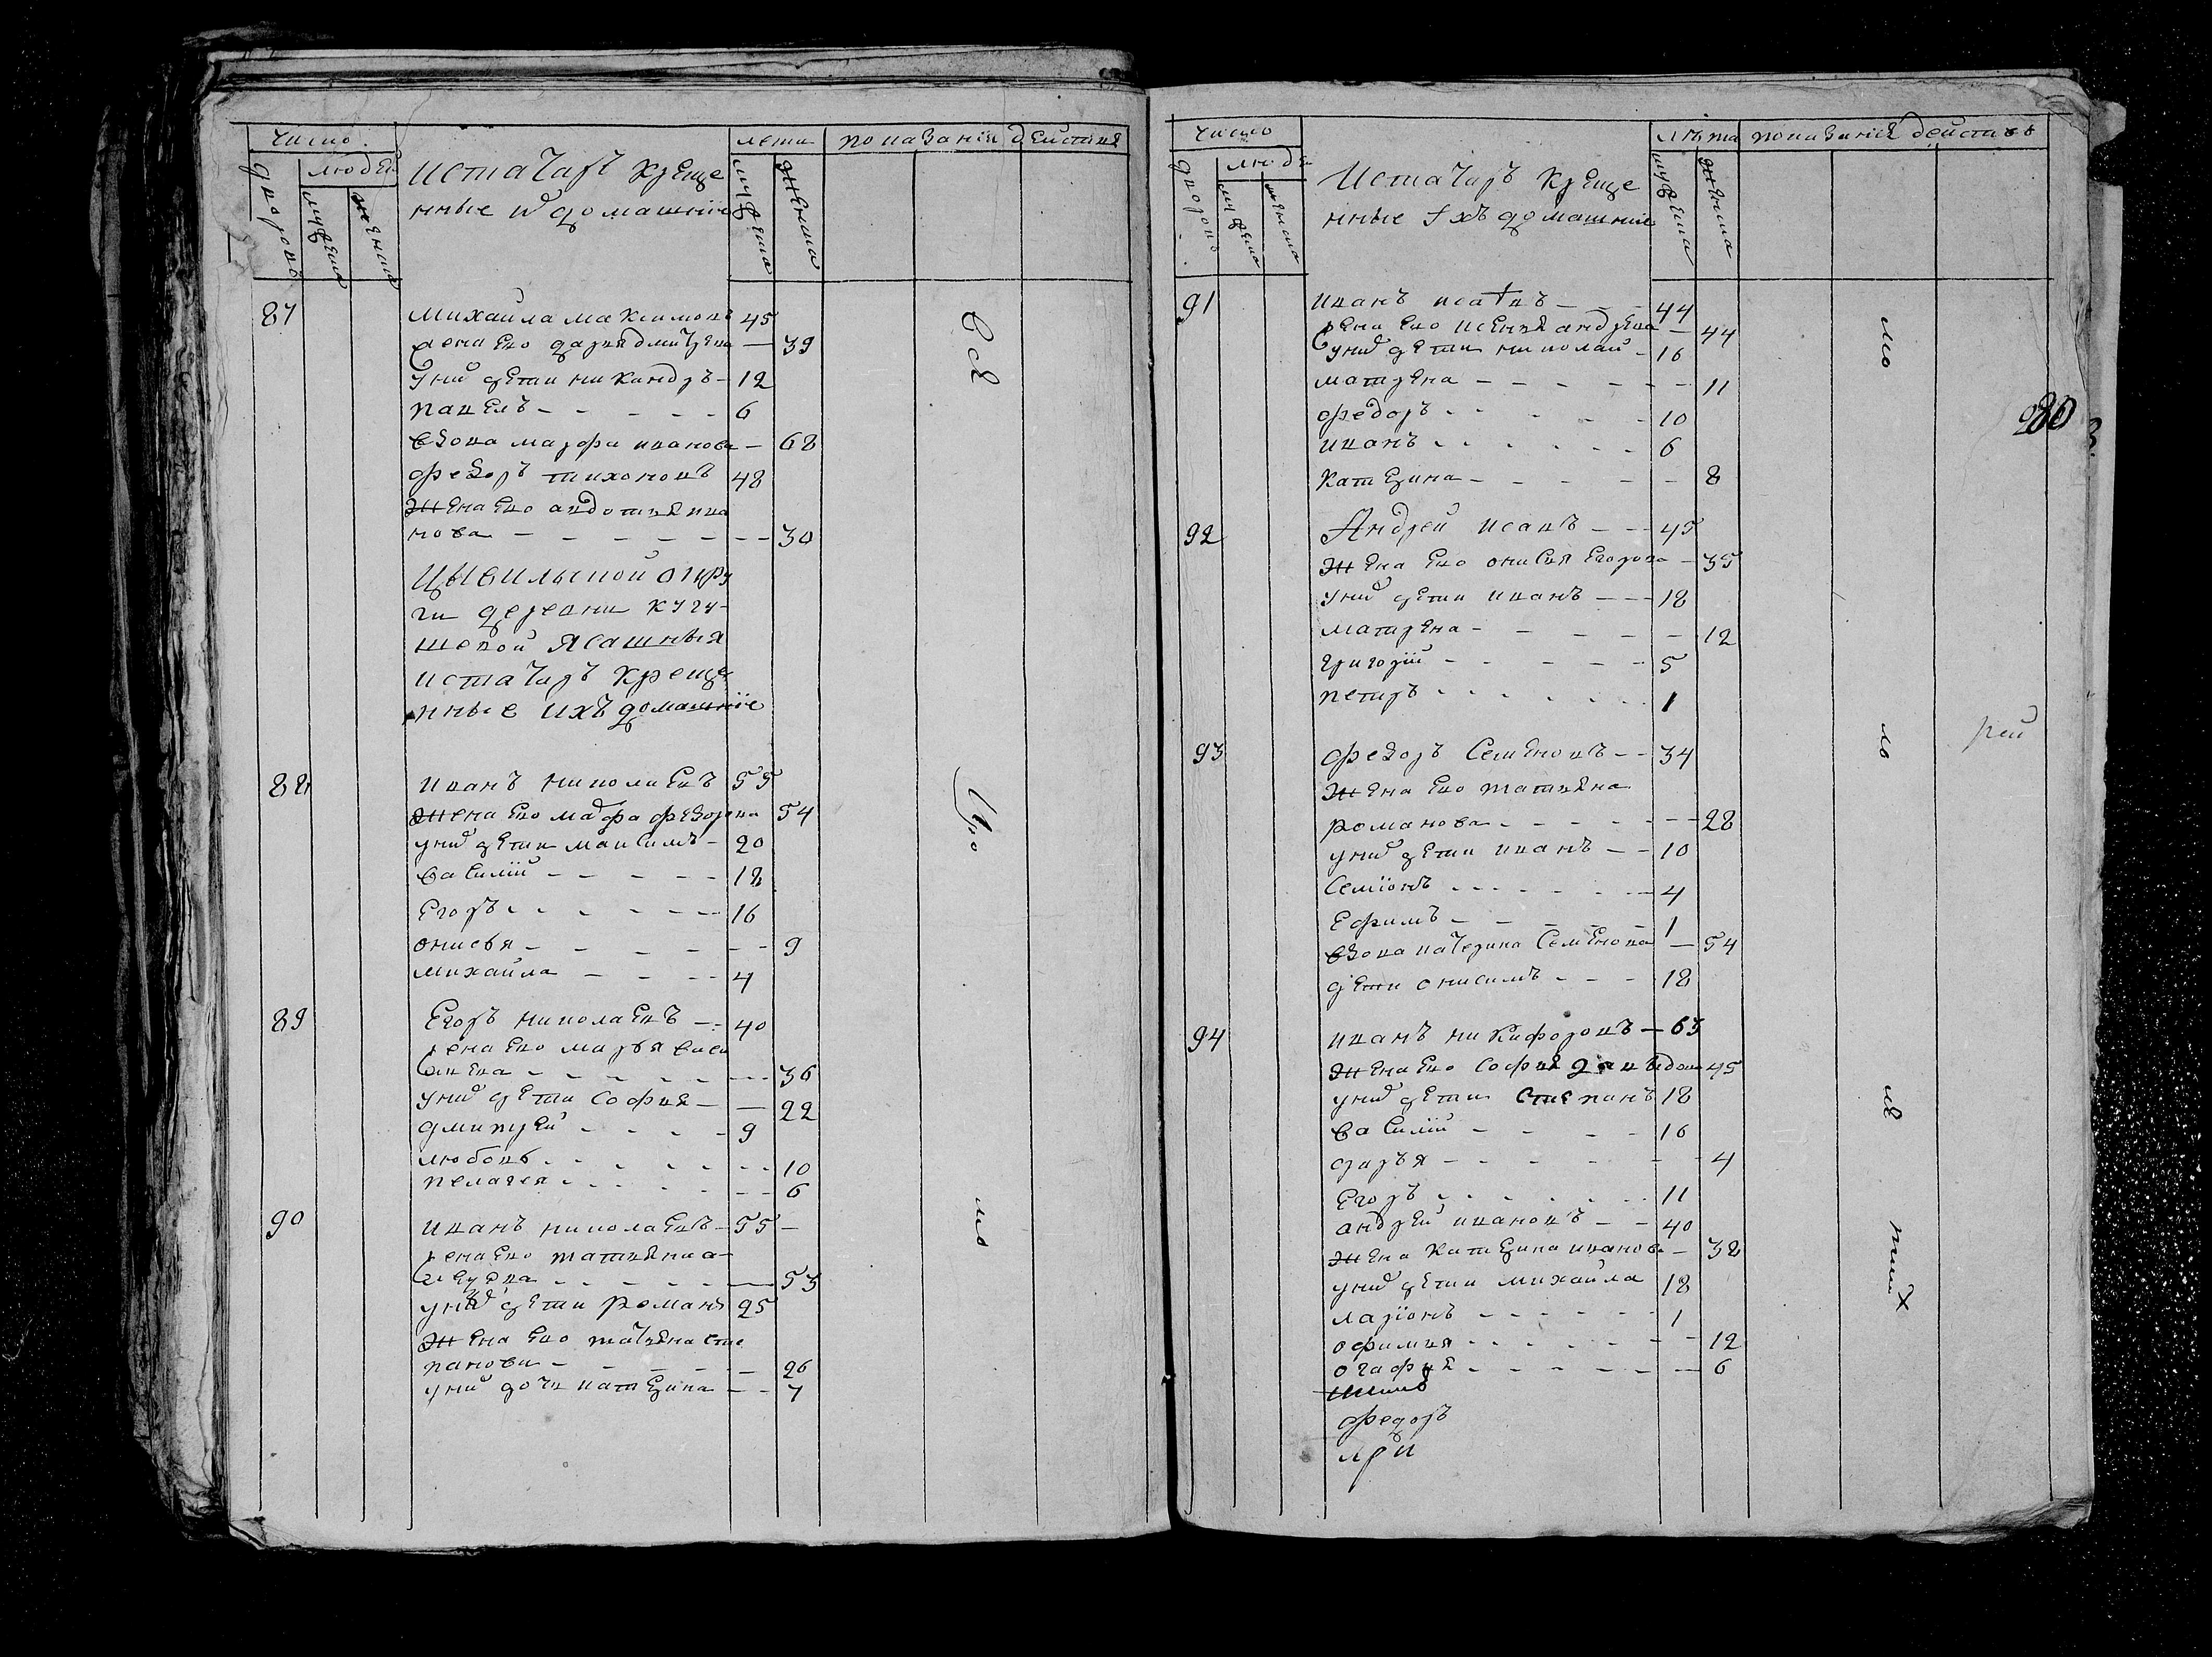 число
лета
показания действия
дворовъ
людей
мужеска
женска
истатаръ креще
нные и домашние
мужеска
женска
87 Михаила Максимовъ 45
жена ево дарья дмитрева — 39
у них дети никандръ — 12
павелъ — 6
вдова марфа иванова — 68
федоръ тихоновъ 48
жена ево авдотья ива
нова — 30
Цывильской округи
деревни
шевой ясашныя
истатаръ креще
нные ихъ домашние
88 иванъ николаевъ 55
жена ево марфа федорова 54
у них дети максимъ — 20
василій — 18
егоръ — 16
онисья — 9
михаила — 4
89 Егоръ николаевъ — 40
жена ево марья васи
льева — 36
у них дети софья — 22
дмитрей — 9
любовь — 10
пелагея — 6
90 иванъ николаевъ — 55 —
жена ево татьяна
— 53
у них дети романъ 25
жена ево татьяна сте
панова — 26
у них дочь катерина — 7
Все
мо
число
лѣта
показания действъ
дворовъ
людей
мужеска
женска
истатаръ креще
нные ихъ домашние
мужеска
женска
91 иванъ исаевъ — 44
жена ево андрева — 44
у них дети николай — 16
матрена — 11
федоръ — 10
иванъ — 6
катерина — 8
92 Андрей исаевъ — 45
жена ево онисья егорова — 35
у них дети иванъ — 18
матрена — 12
григорій — 5
петръ — 1
93 федоръ семеновъ — 34
жена ево татьяна
романова — 28
у них дети иванъ — 10
семіонъ — 4
ефимъ — 1
вдова катерина семенова — 54
дети онисимъ — 18
94 иванъ никифоровъ — 65
жена ево софья 45
у них дети степанъ 18
василій — 16
дарья — 4
егоръ — 11
андрей ивановъ — 40
жена катерина иванова — 38
у них дети михаила 18
ларіонъ — 1
офимья — 12
огафья — 6
федоръ
мо
ло
рей
ле
тих